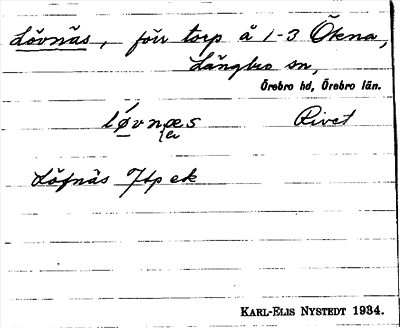 Lövnäs, förr torp å 1-3 Ökna,
Längbro sn,
Örebro hd, Örebro län.
løvnæs Rivet
Löfnäs Jtp ek
KARL-ELIS NYSTEDT 1934.